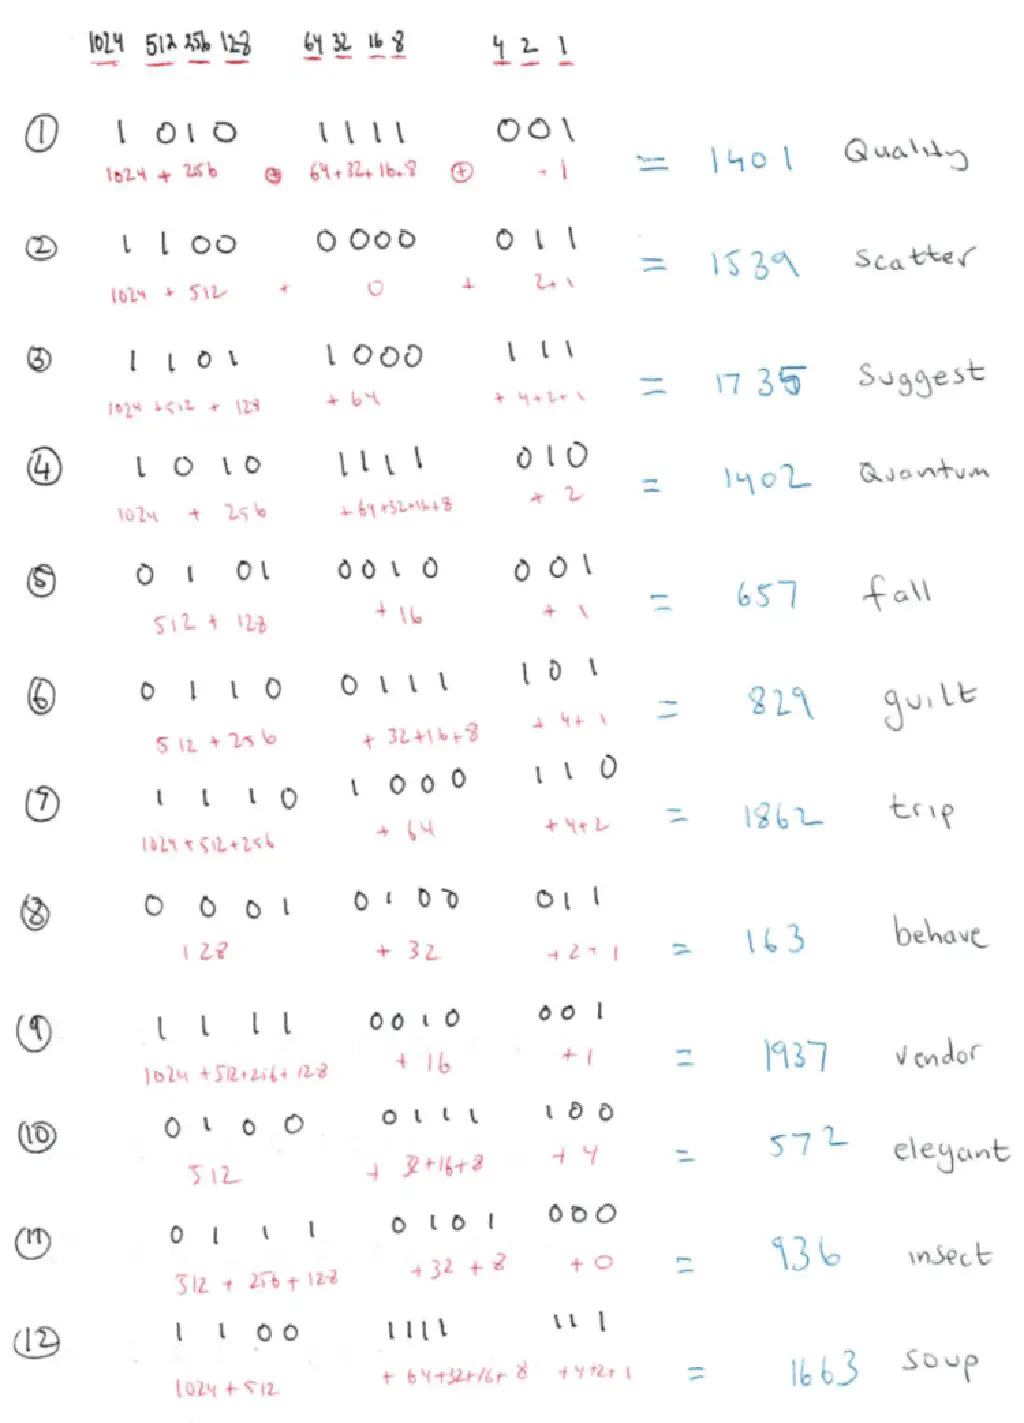 1024 512 256 128 64 32 16 8 4 2 1
① 1 0 1 0 1 1 1 1 0 0 1
1024 + 256 ⊕ 64+32+16+8 ⊕ +1 = 1401 Quality
② 1 1 0 0 0 0 0 0 0 1 1
1024 + 512 + 0 + 2+1 = 1539 Scatter
③ 1 1 0 1 1 0 0 0 1 1 1
1024 + 512 + 128 + 64 + 4+2+1 = 1735 Suggest
④ 1 0 1 0 1 1 1 1 0 1 0
1024 + 256 + 64+32+16+8 + 2 = 1402 Quantum
⑤ 0 1 0 1 0 0 1 0 0 0 1
512 + 128 + 16 + 1 = 657 fall
⑥ 0 1 1 0 0 1 1 1 1 0 1
512 + 256 + 32+16+8 + 4+1 = 829 guilt
⑦ 1 1 1 0 1 0 0 0 1 1 0
1024+512+256 + 64 + 4+2 = 1862 trip
⑧ 0 0 0 1 0 1 0 0 0 1 1
128 + 32 + 2+1 = 163 behave
⑨ 1 1 1 1 0 0 1 0 0 0 1
1024 + 512+256+128 + 16 + 1 = 1937 vendor
⑩ 0 1 0 0 0 1 1 1 1 0 0
512 + 32+16+8 + 4 = 572 elegant
⑪ 0 1 1 1 0 1 0 1 0 0 0
512 + 256 + 128 + 32 + 8 + 0 = 936 insect
⑫ 1 1 0 0 1 1 1 1 1 1 1
1024 + 512 + 64+32+16+8 + 4+2+1 = 1663 soup